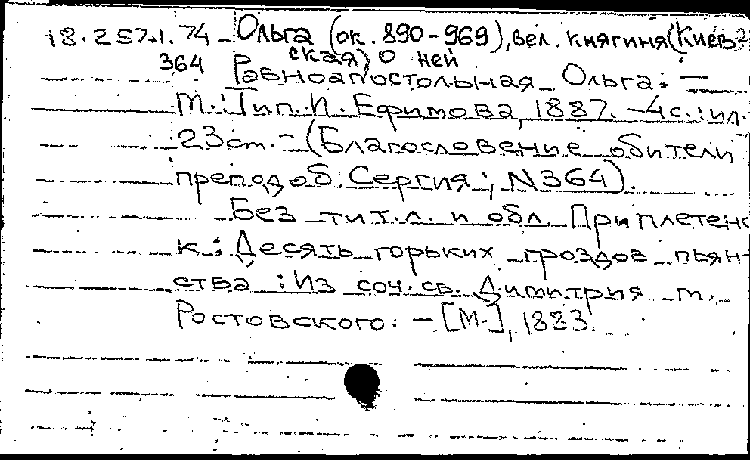 18.257.1.74 Ольга (ок. 890-969), вел. княгиня (Киев-
364 ская) О ней
Равноапостольная Ольга. —
М.: Тип. И. Ефимова, 1887. -4с.: ил.
23см. - (Благословение обители
преподоб. Сергия; N364).
Без тит.л. и обл. Приплетено
к: Десять горьких гроздов пьян-
ства: Из соч. св. Димитрия м.
Ростовского. - [М.], 1883.